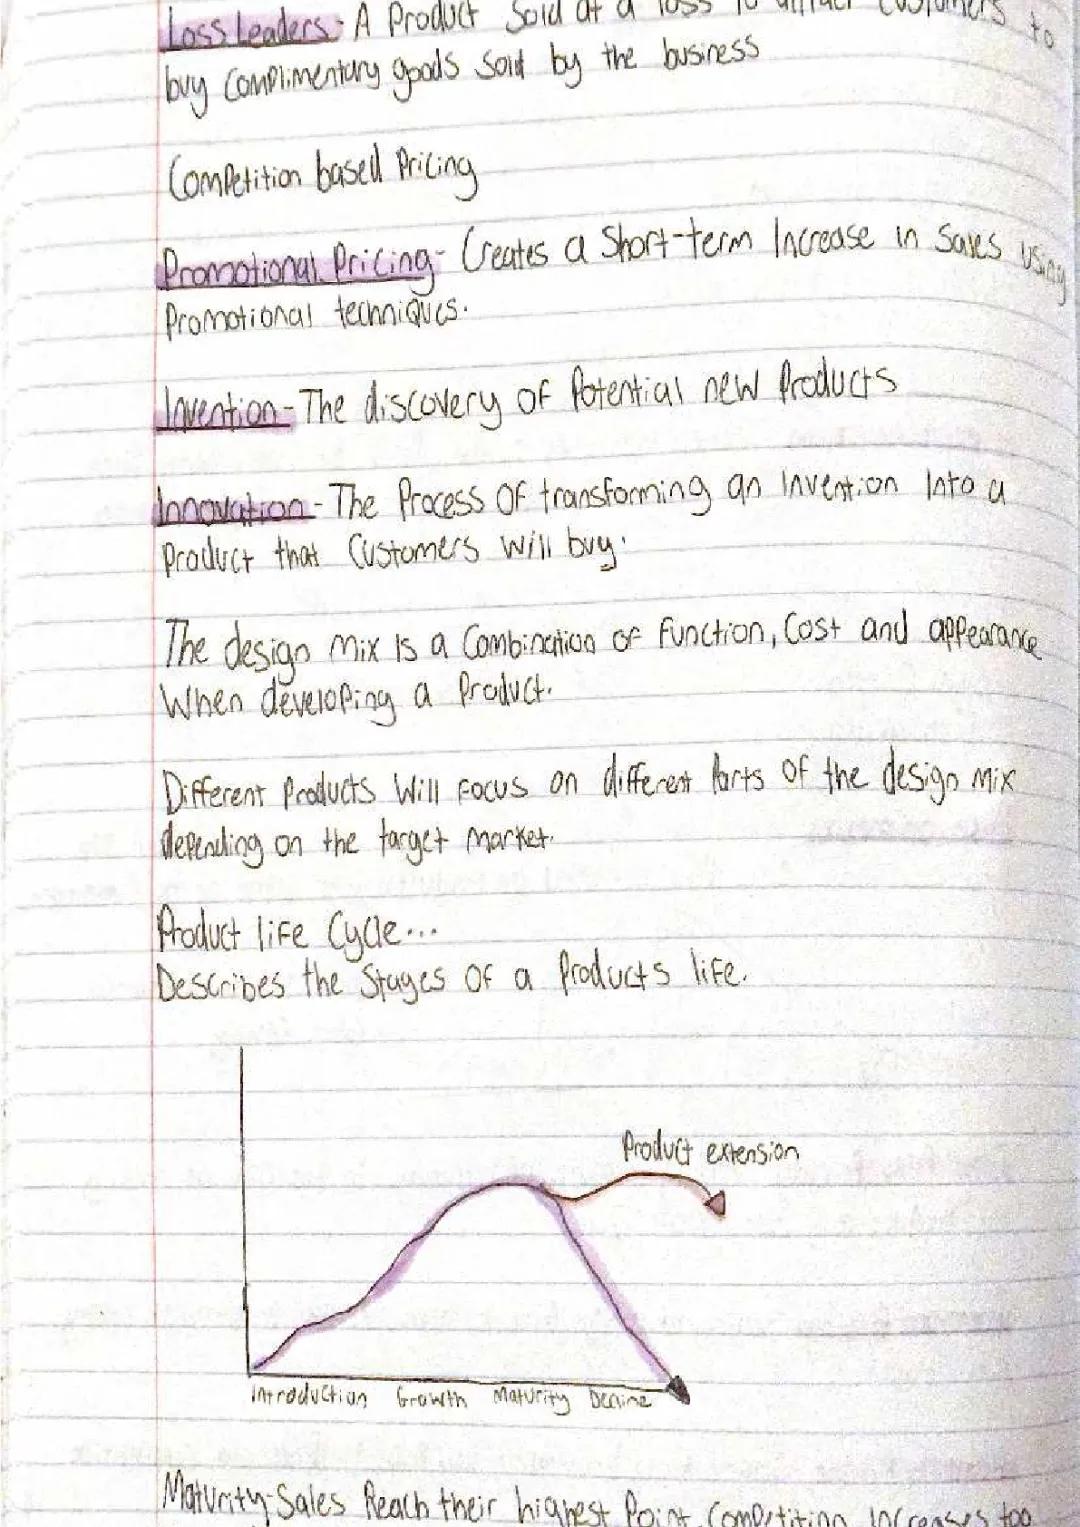 Loss Leaders- A Product Sold at a loss to attract Customers to
buy Complimentary goods Sold by the business
Competition based Pricing
Promotional Pricing- Creates a Short-term Increase in Sales using
Promotional techniques.
Invention- The discovery of Potential new Products
Innovation- The Process Of transforming an Invention Into a
Product that Customers Will buy.
The design Mix Is a Combination of Function, Cost and appearance
When developing a Product.
Different Products Will Focus on different Parts Of the design Mix
depending on the target Market.
Product life Cycle...
Describes the Stages Of a Products life.
Product extension
Introduction Growth Maturity Decline
Maturity- Sales Reach their highest Point. Competition Increases too